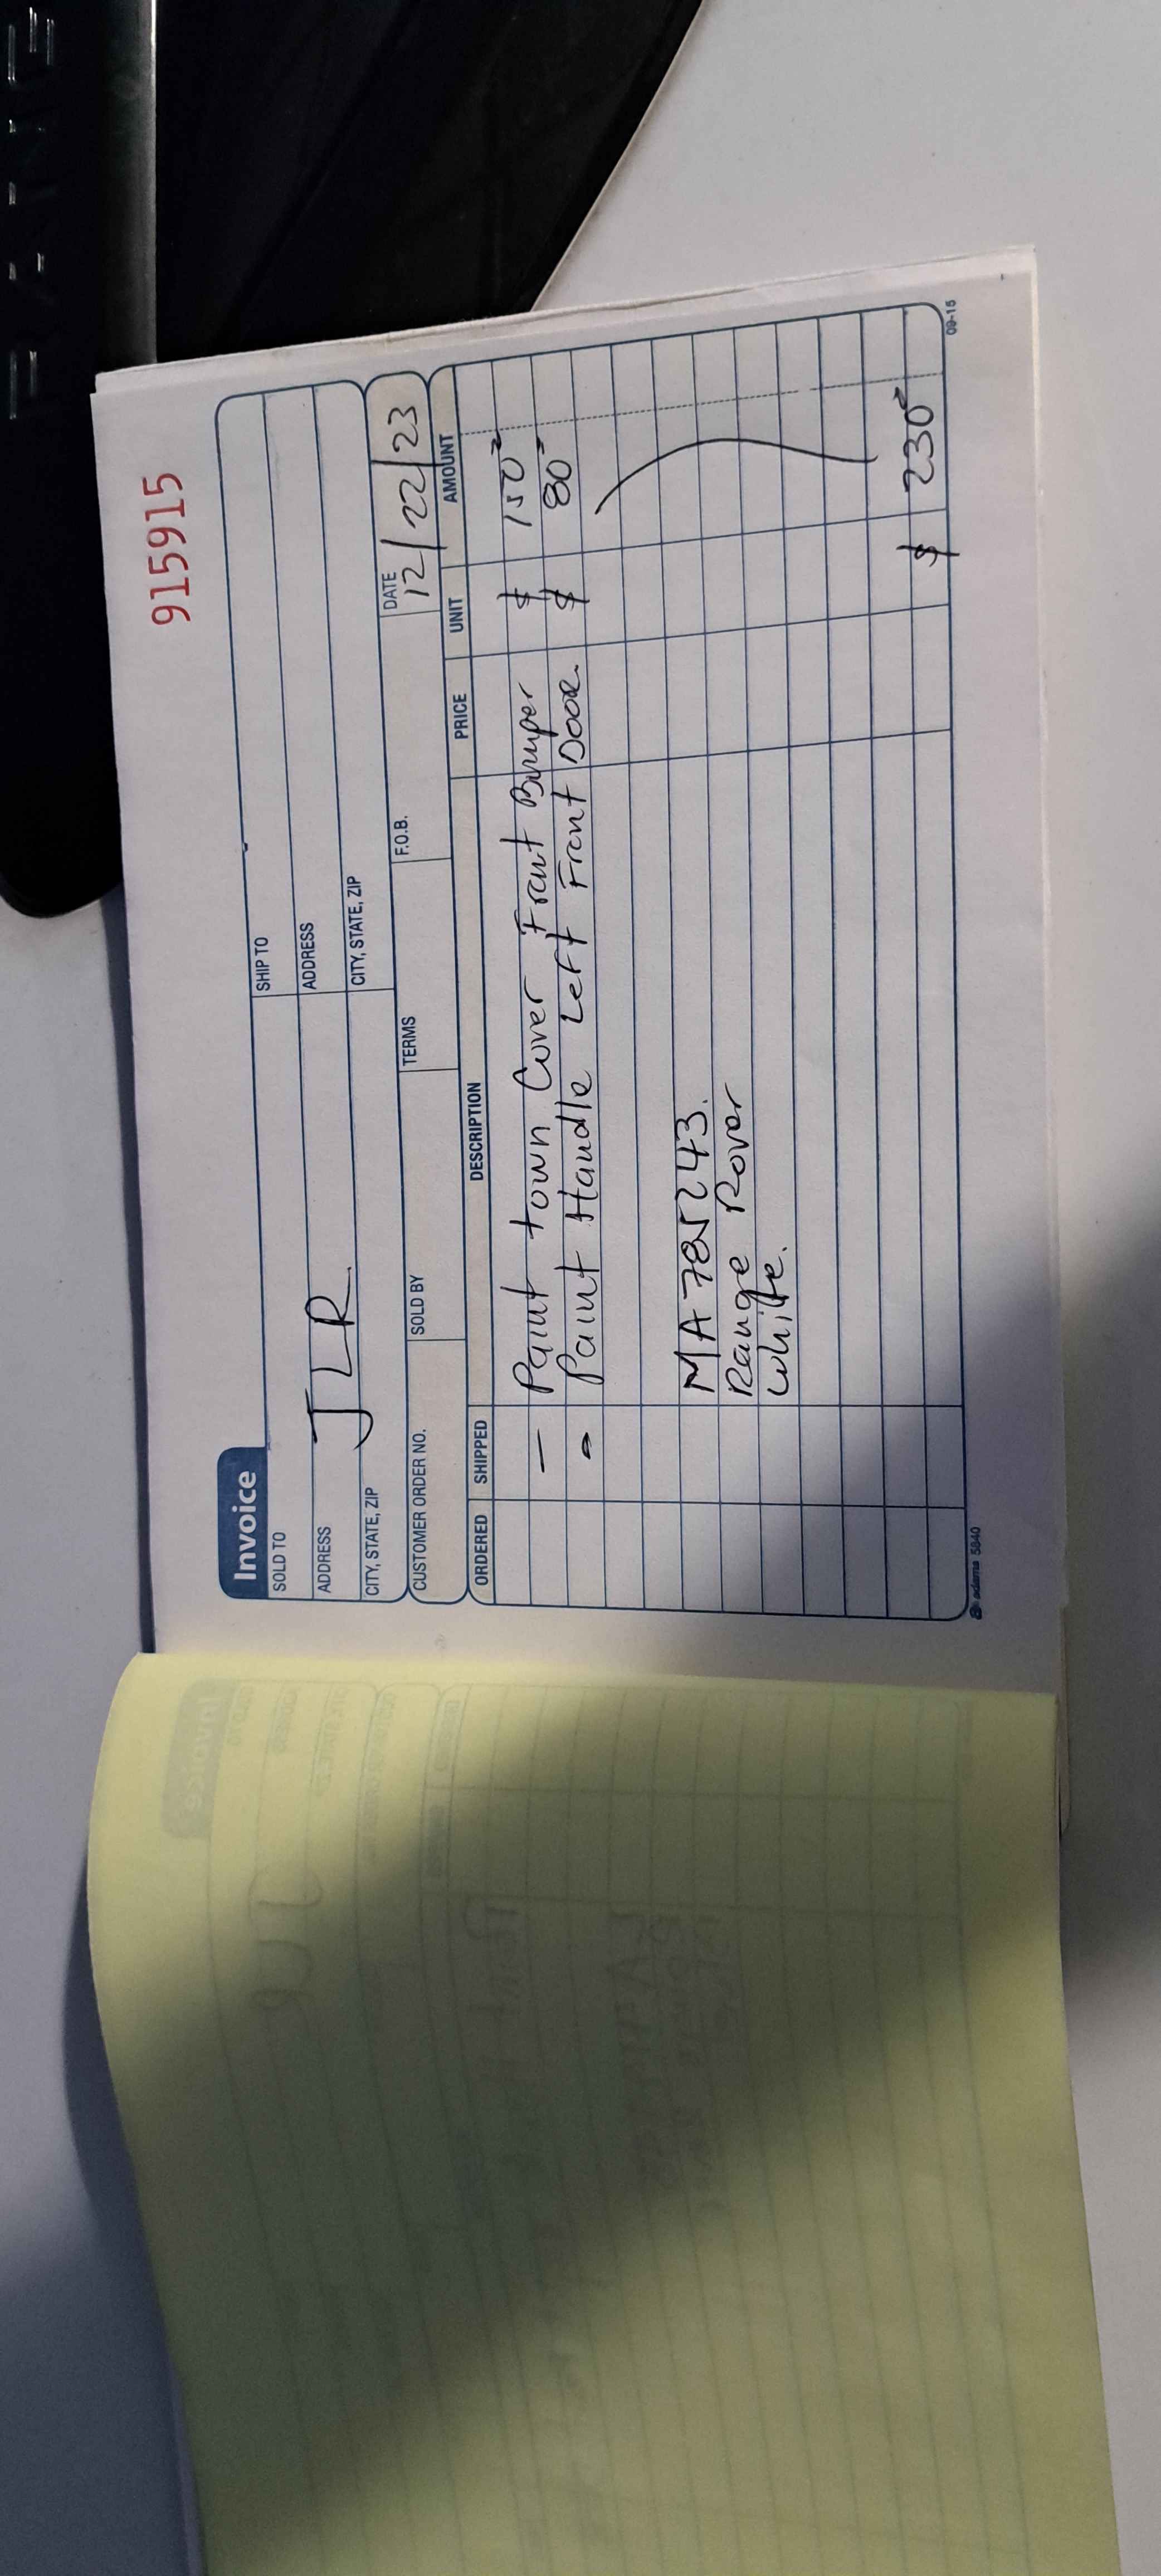 915915
Invoice
SOLD TO
SHIP TO
ADDRESS
JLR
ADDRESS
CITY, STATE, ZIP
CITY, STATE, ZIP
CUSTOMER ORDER NO.
SOLD BY
TERMS
F.O.B.
DATE
12/22/23
ORDERED SHIPPED DESCRIPTION PRICE UNIT AMOUNT
– Paint town Cover Front Bumper $ 150
- Paint Handle Left Front Door. $ 80
MA785243.
Range Rover
White.
$ 230
adams 5840
09-15